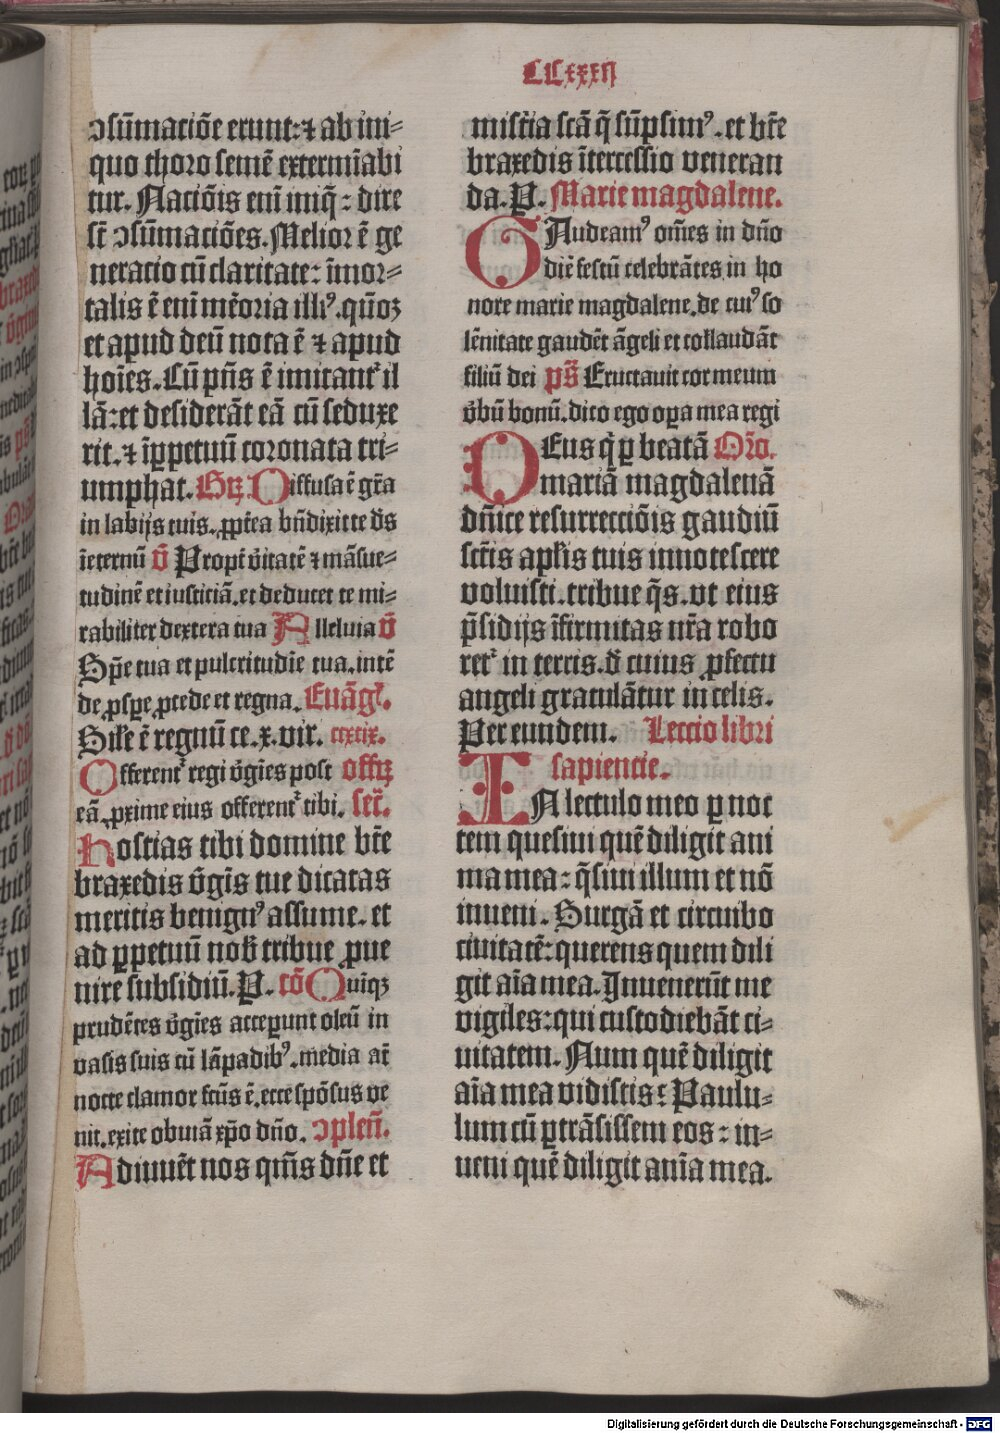 CCxxxii
ↄsūmaciōe erunt: ⁊ ab ini-
quo thoro semē extermīabi
tur. Naciōis enī iniq̄: dire
sēt ↄsūmaciōes. Melior ē ge
neracio cū claritate: īmor-
talis ē enī mēoria illiꝰ. qm̄oꝫ
et apud deū nota ē ⁊ apud
hoīes. Cū pn̄s ē imitantᷣ il
lā: et desiderāt eā cū seduxe
rit. ⁊ īppetuū coronata tri-
umphat. Grꝫ Diffusa ē gr̄a
in labijs tuis. ꝓpt̄ea bn̄dixit te ds̄
īeternū v̄ Propt̄ v̄itatē ⁊ māsue-
tudinē et iusticiā. et deducet te mi-
rabiliter dextera tua Alleluia v̄
Spē tua et pulcritudīe tua. intē
de ꝓspe ꝓcede et regna. Euāgl̄.
Sīle ē regnū ce. x. vir. cxcix.
Offerentᷣ regi v̄gīes post offꝫ
eā. ꝓxime eius offerentᷣ tibi. secᷣ.
Hostias tibi domine bt̄e
braxedis v̄gīs tue dicatas
meritis benignꝰ assume. et
ad ꝑpetuū nob̄ tribue ꝓue
nire subsidiū. P. cō Quīqꝫ
prudētes v̄gīes acceperunt oleū in
vasis suis cū lāpadibꝰ. media aūt
nocte clamor fctūs ē. ecce spōsus ve
nit. exite obuiā xp̄o dn̄o. ↄplen̄.
Adiuuēt nos qm̄s dn̄e et
mist̄ia scā q̄ sūpsimꝰ. et bt̄e
braxedis ītercessio veneran
da. P. Marie magdalene.
GAudeamꝰ om̄es in dn̄o
diē festū celebrātes in ho
nore marie magdalene. de cuiꝰ so
lēnitate gaudēt āgeli et collaudāt
filiū dei ps̄ Eructauit cor meum
v̄bū bonū. dico ego opa mea regi
DEus q̄ ꝑ beatā Or̄o.
mariā magdalenā
dn̄ice resurrecciōis gaudiū
sctīs apl̄is tuis innotescere
voluisti. tribue q̄s. vt eius
p̄sidijs īfirmitas nr̄a robo
retᷣ in terris. d̄ cuius ꝓfectu
angeli gratulātur in celis.
Per eundem. Leccio libri
sapiencie.
IN lectulo meo ꝑ noc
tem quesiui quē diligit ani
ma mea: q̄siui illum et nō
inueni. Surgā et circuibo
ciuitatē: querens quem dili
git aīa mea. Inuenerūt me
vigiles: qui custodiebāt ci-
uitatem. Num quē diligit
aīa mea vidistis: Paulu-
lum cū ꝑtrāsissem eos: in-
ueni quē diligit anīa mea.
Digitalisierung gefördert durch die Deutsche Forschungsgemeinschaft - DFG